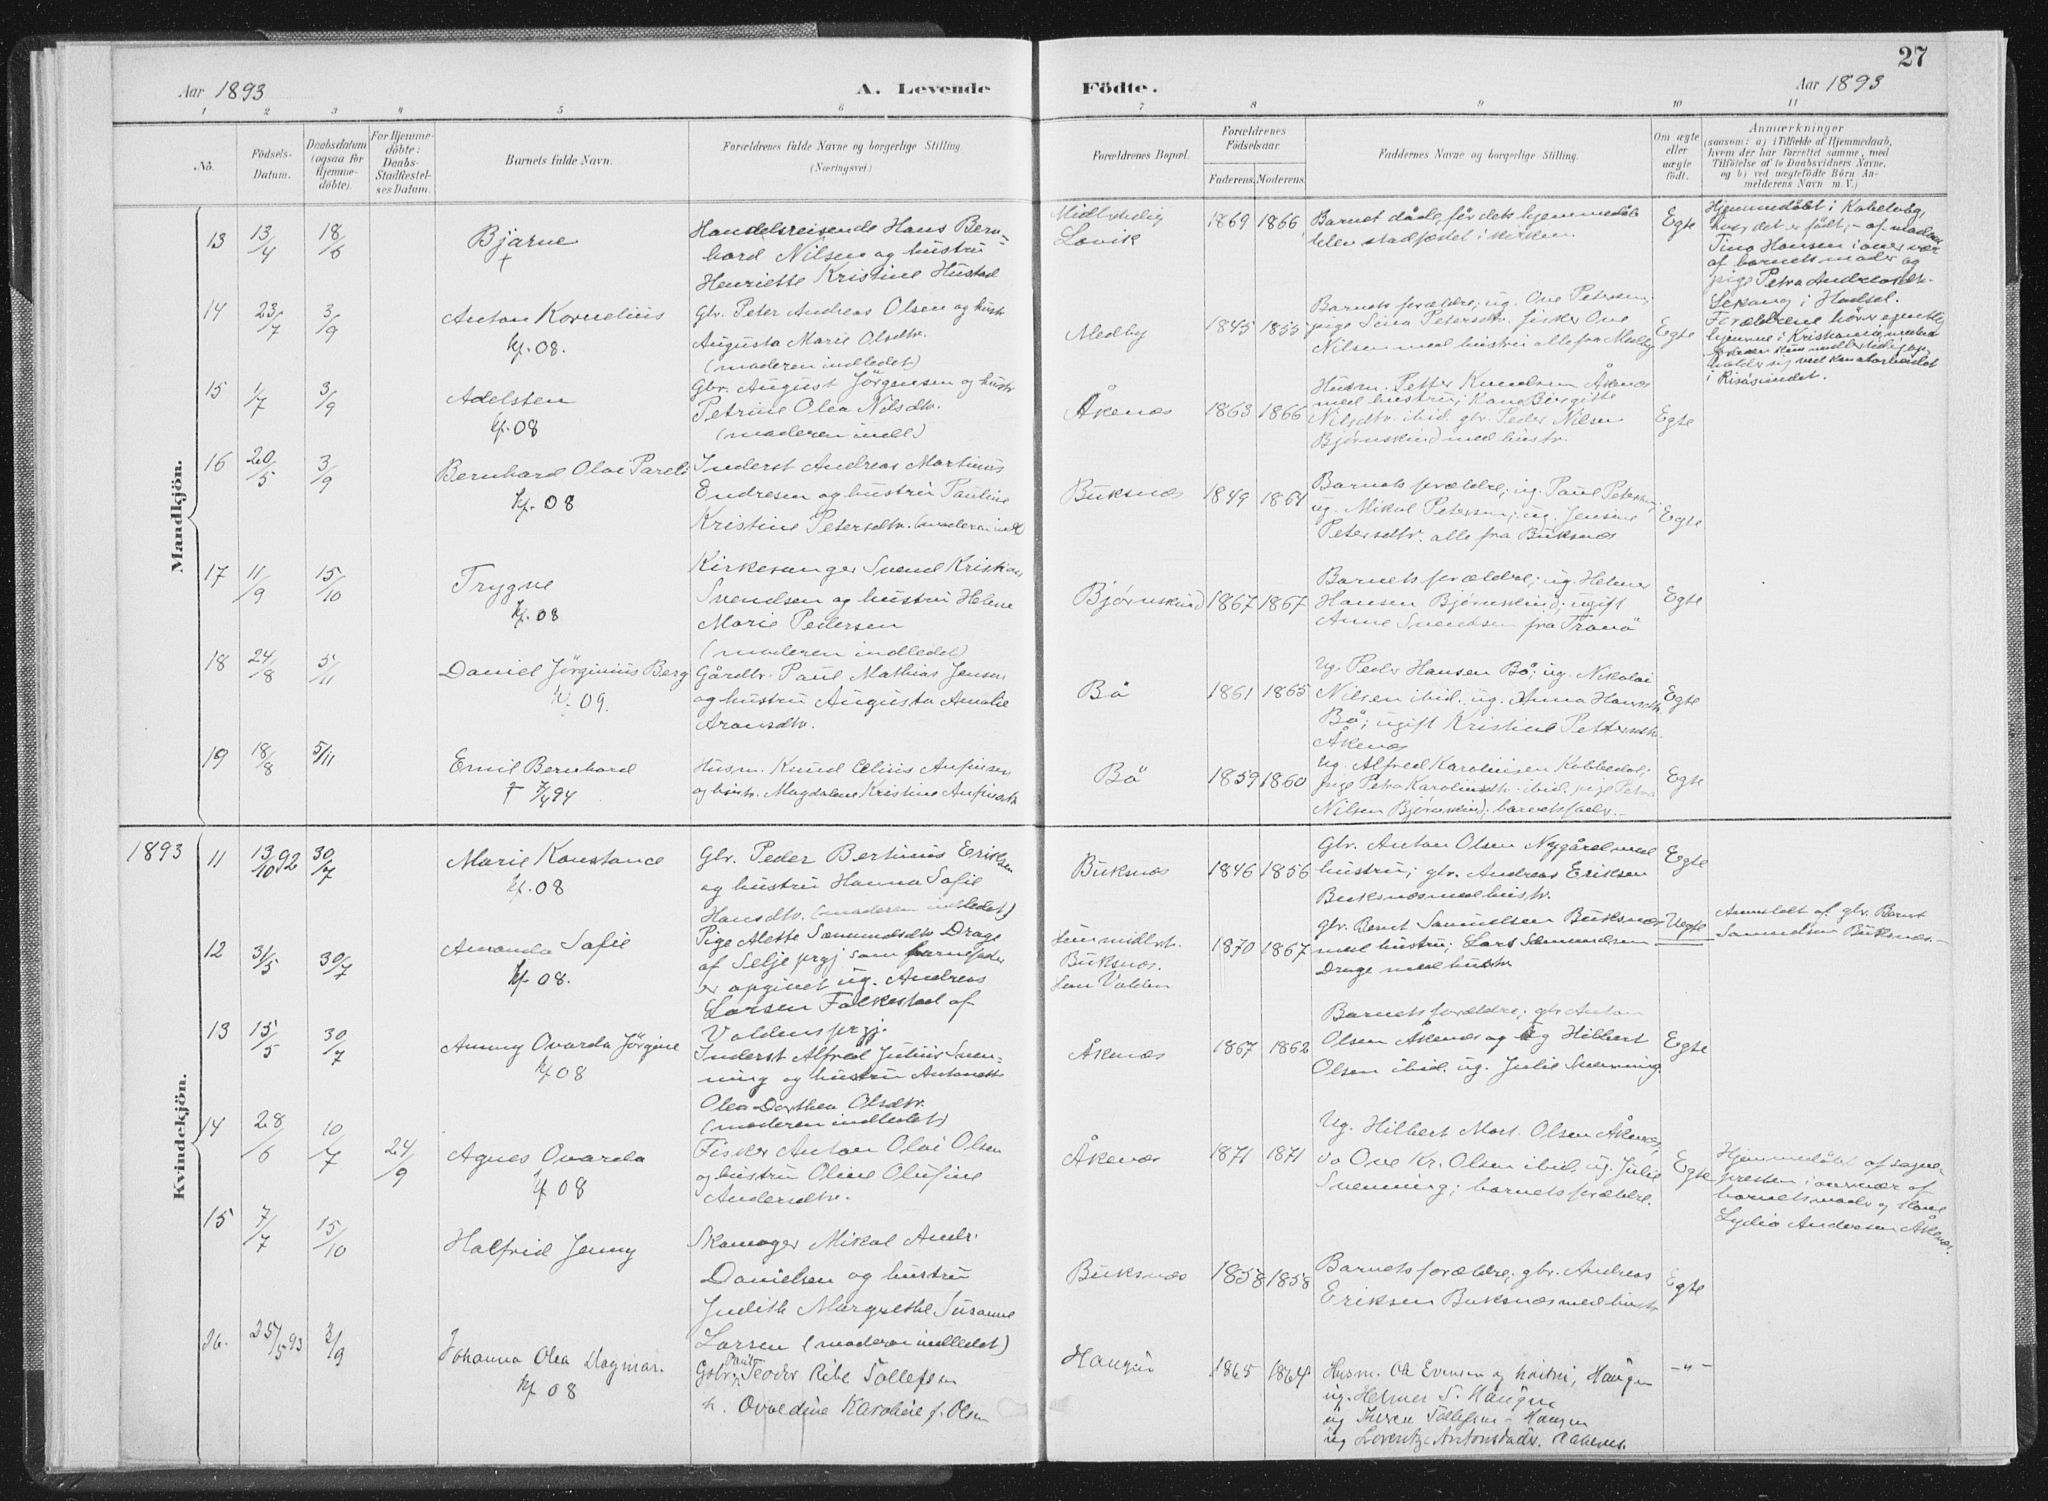 27
Aar 1893
A. Levende
Födte.
Aar 1893
1 2 3 4 5 6 7 8 9 10 11
No.
Födsels-
Datum.
Daabsdatum
(ogsaa for
Hjemme-
döbte).
For Hjemme-
döbte:
Daabs-
Stadfæstel-
ses Datum.
Barnets fulde Navn.
Forældrenes fulde Navne og borgerlige Stilling
(Næringsvei.)
Forældrenes Bopæl.
Forældrenes
Födselsaar
Faderens. Moderens.
Faddernes Navne og borgerlige Stilling.
Om ægte
eller
uægte
födt.
Anmærkninger
(saasom: a) i Tilfælde af Hjemmedaab,
hvem der har forrettet samme, med
Tilföielse af to Daabsvidners Navne,
og b) ved uægtefödte Börn An-
melderens Navn m. V.)
Mandkjön.
13 13/4 18/6 Bjarne
†
Handelsreisende Hans Bern-
hard Nilsen og hustru
Henriette Kristine Hustad
Midlertidig
Lovik
1869 1866
Barnet døde, før dets hjemmedåb
blev stadfæstet i kirken.
Egte
Hjemmedøbt i Kabelvåg,
hvor det er født, – af madam
Tina Hansen i overvær
af barnets moder og
pige Petra Andreasdtr.
i Hadsel.
Forældrene hører egentlig
hjemme i Kristiania,
i Risøsundet.
14 23/7 3/9 Anton Kornelius
kf. 08.
Gbr. Peter Andreas Olsen og hustr.
Augusta Marie Olsdtr.
(moderen indledet)
Medby
1845 1855
Barnets forældre; ug. Ove Petersen,
pige Sina Petersdtr. fisker Ove
Nilsen med hustru alle fra Medby
Egte
15 1/7 3/9 Adelsten
kf. 08
Gbr. August Jörgensen og hustr.
Petrine Olea Nilsdtr.
(moderen indl.)
Åkenæs
1863 1866
Husm. Petter Knudsen Åkenæs
med hustru; Kone Birgitte
Nilsdtr. ibid. gbr. Peder Nilsen
Bjørnskind med hustr.
Egte
16 20/5 3/9 Bernhard Olai Pareli
kf. 08
Inderst Andreas Martinus
Endresen og hustru Pauline
Kristine Petersdtr. (moderen indl)
Buksnæs
1849 1864
Barnets forældre; ug. Paul Petersen;
ug. Mikal Petersen; ug. Jensine
Petersdtr. alle fra Buksnæs
Egte
17 11/9 15/10 Trygve
kf. 08
Kirkesanger Svend Kristian
Svendsen og hustru Helene
Marie Pedersen
(moderen indledet)
Bjørnskind
1867 1867
Barnets forældre; ug. Helmer
Hansen Bjørnskind; ugift
Anne Svendsen fra Tranö
Egte
18 24/8 5/11 Daniel Jörginius Berg
kf. 09.
Gårdbr. Paul Mathias Jensen
og hustru Augusta Amalie
Aronsdtr.
Bö
1861 1865
Ug. Peder Hansen Bö; ug. Nikolai
Nilsen ibid. ug. Anna Hansdtr.
Bö; ugift Kristine Pettersdtr.
Åkenæs
Egte
19 18/8 5/11 Emil Bernhard
† 7/4 94
Husm. Knud Elius Anfinsen
og hustr. Magdalene Kristine Anfinsdtr.
Bö
1859 1860
Ug. Alfred Karolinsen Kobbedal;
pige Petra Karolinsdtr. ibid. pige Petra
Nilsen Bjørnskind; barnets fader.
Egte
Kvindekjön.
1893 11 13/10 92 30/7 Marie Konstance
kf. 08
Gbr. Peder Bertinus Eriksen
og hustru Hanna Sofie
Hansdtr. (moderen indledet)
Buksnæs
1846 1856
Gbr. Anton Olsen Nygård med
hustru; gbr. Andreas Eriksen
Buksnæs med hustr.
Egte
12 31/5 30/7 Amanda Sofie
kf. 08.
Pige Alette Sæmundsdtr. Drage
af Selje prgj. som barnefader
er opgivet ug. Andreas
Larsen Folkestad af
Voldens prgj.
Hun midlert.
Buksnæs.
Han Volden
1870 1867
Gbr. Bernt Samuelsen Buksnæs
med hustru; Lars Sæmundsen
Drage med hustr.
Uegte
Anmeldt af gbr. Bernt
Samuelsen Buksnæs.
13 15/5 30/7 Ammy Ovarda Jörgine
kf 08
Inderst Alfred Julius Sven-
ning og hustru Antonette
Olea Dorthea Olsdtr.
(moderen indledet)
Åkenæs
1867 1862
Barnets forældre; gbr Anton
Olsen Åkenæs og ug Hilbert
Olsen ibid. ug. Julie Svenning.
Egte
14 28/6 10/7 24/9 Agnes Ovarda
kf 08
Fisker Anton Olai Olsen
og hustru Oline Olufine
Andersdtr.
Åkenæs
1871 1871
Ug. Hilbert Mart. Olsen Åkenæs,
do Ove Kr. Olsen ibid. ug. Julie
Svenning; barnets forældre.
Egte
Hjemmedøbt af sogne-
presten i overvær af
barnets moder og kone
Lydia Andersen Åkenæs.
15 7/7 15/10 Halfrid Jenny
Skomager Mikal Andr.
Danielsen og hustru
Judith Margrethe Susanne
Larsen (moderen indledet)
Buksnæs
1858 1858
Barnets forældre; gbr. Andreas
Eriksen Buksnæs med hustr
Egte
16. 25/5 93 3/9 Johanna Olea Dagmar.
kf 08
Gbr. Paul Teodor Ribe Tollefsen
h. Ovaldine Karoline f. Olsen
Haugen
1865 1864
Husm. Ol. Evensen og hustru, Haugen
ug. Helmer S. Haugen
ug Tollefsen – Haugen
ug Lorentze Antonsdatr. Aakenes.
–"–